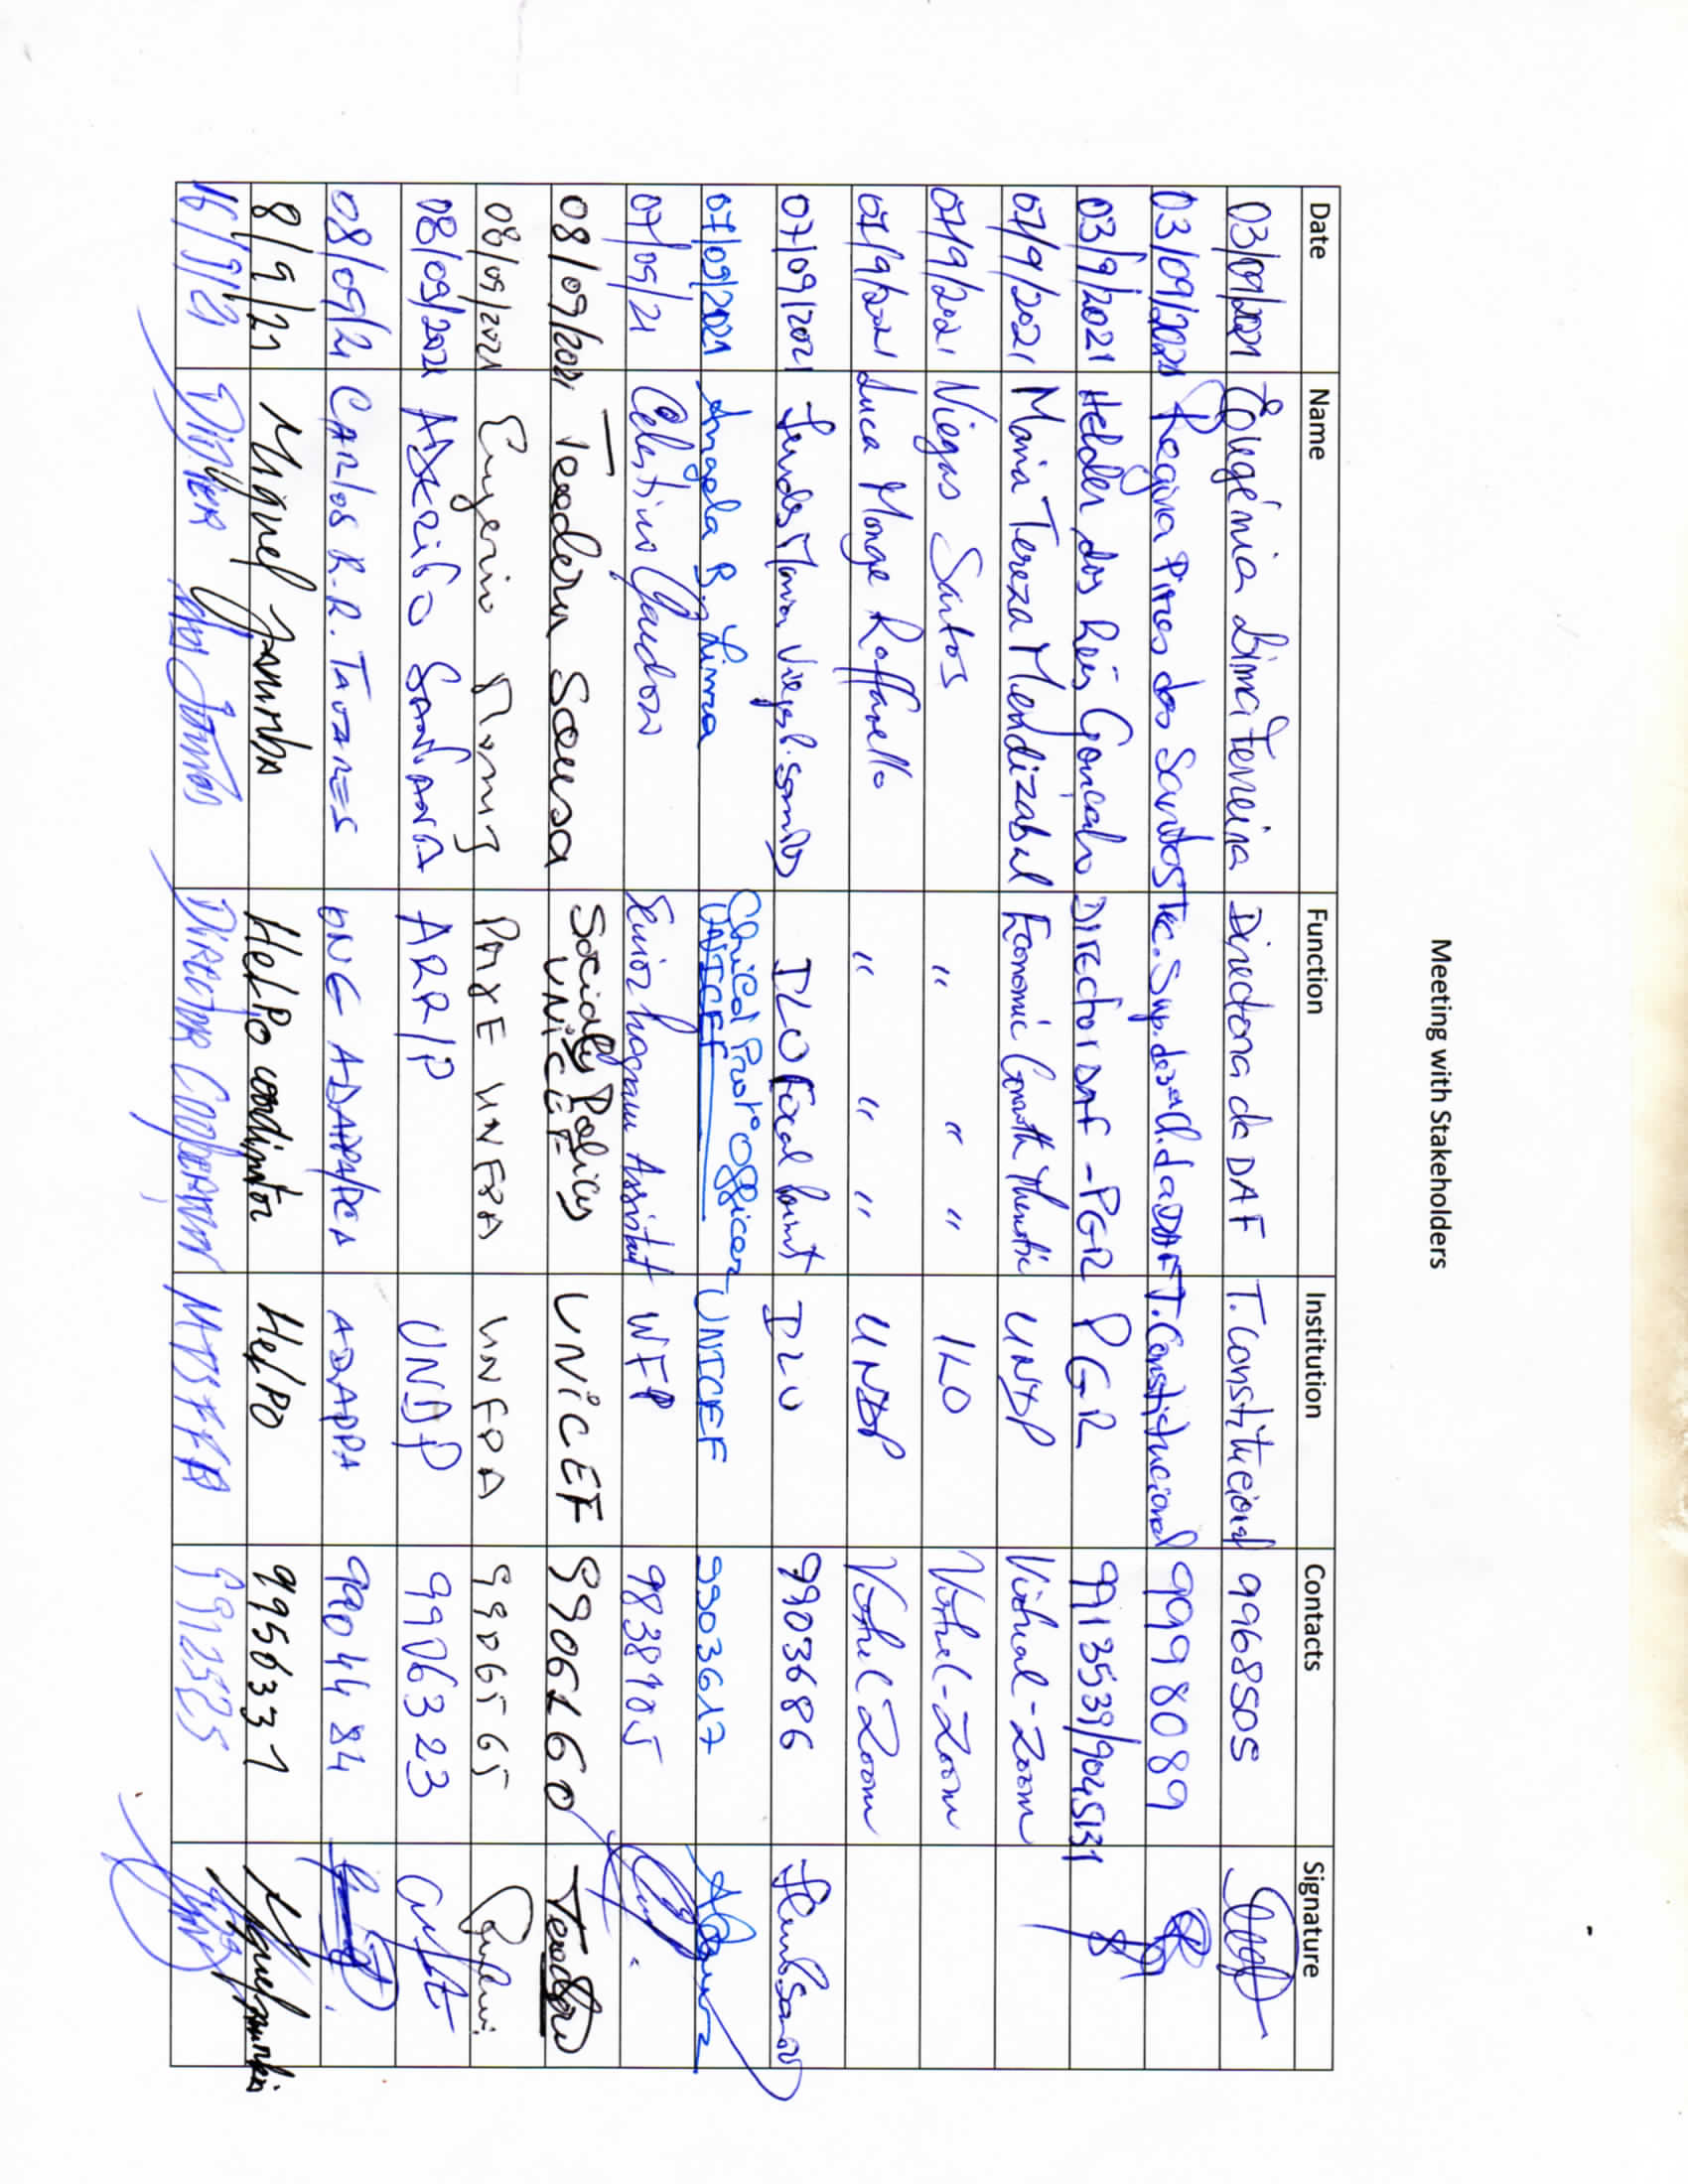 Meeting with Stakeholders
Date Name Function Institution Contacts Signature
03/09/2021 Eugénia Diniz Ferreira Directora da DAF T. Constitucional 9968505
03/09/2021 Regina Pires dos Santos Téc. Sup. de 3ª cl. da DAF T. Constitucional 9998089
03/9/2021 Helder dos Reis Gonçalo Director DAF - PGR PGR 9913539/9045131
07/9/2021 Maria Tereza Mendizabal Economic Growth Thematic UNDP Virtual - Zoom
07/9/2021 Viegas Santos " " " ILO Virtuel - Zoom
07/9/2021 Luca Monge Roffarello " " " UNDP Virtuel Zoom
07/09/2021 Maria Viegas ILO Focal Point ILO 9903686
07/09/2021 Angela B. Lima Chical Prot Officer UNICEF UNICEF 9903617
07/09/21 Celestino Cardoso Senior Program Assistant WFP 9838905
08/09/2021 Teodora Sousa Social Policies UNICEF UNICEF 9906160
08/09/2021 Eugerio UNFPA UNFPA 9906565
08/09/2021 Santana ARR/P UNDP 9906323
08/09/21 Carlos R.R. Tavares ADAPPA 9904484
8/9/21 Miguel Jasumba HELPO coordinator HELPO 9956331
16/9/21 Director 9912525